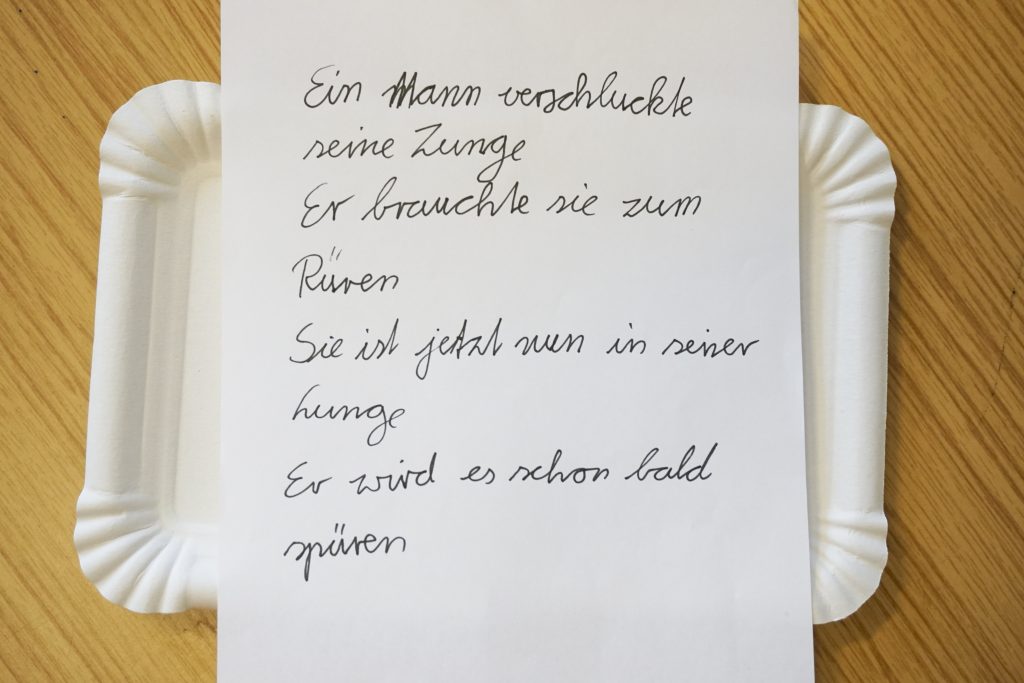 Ein Mann verschluckte
seine Zunge
Er brauchte sie zum
Rüren
Sie ist jetzt nun in seiner
Lunge
Er wird es schon bald
spüren